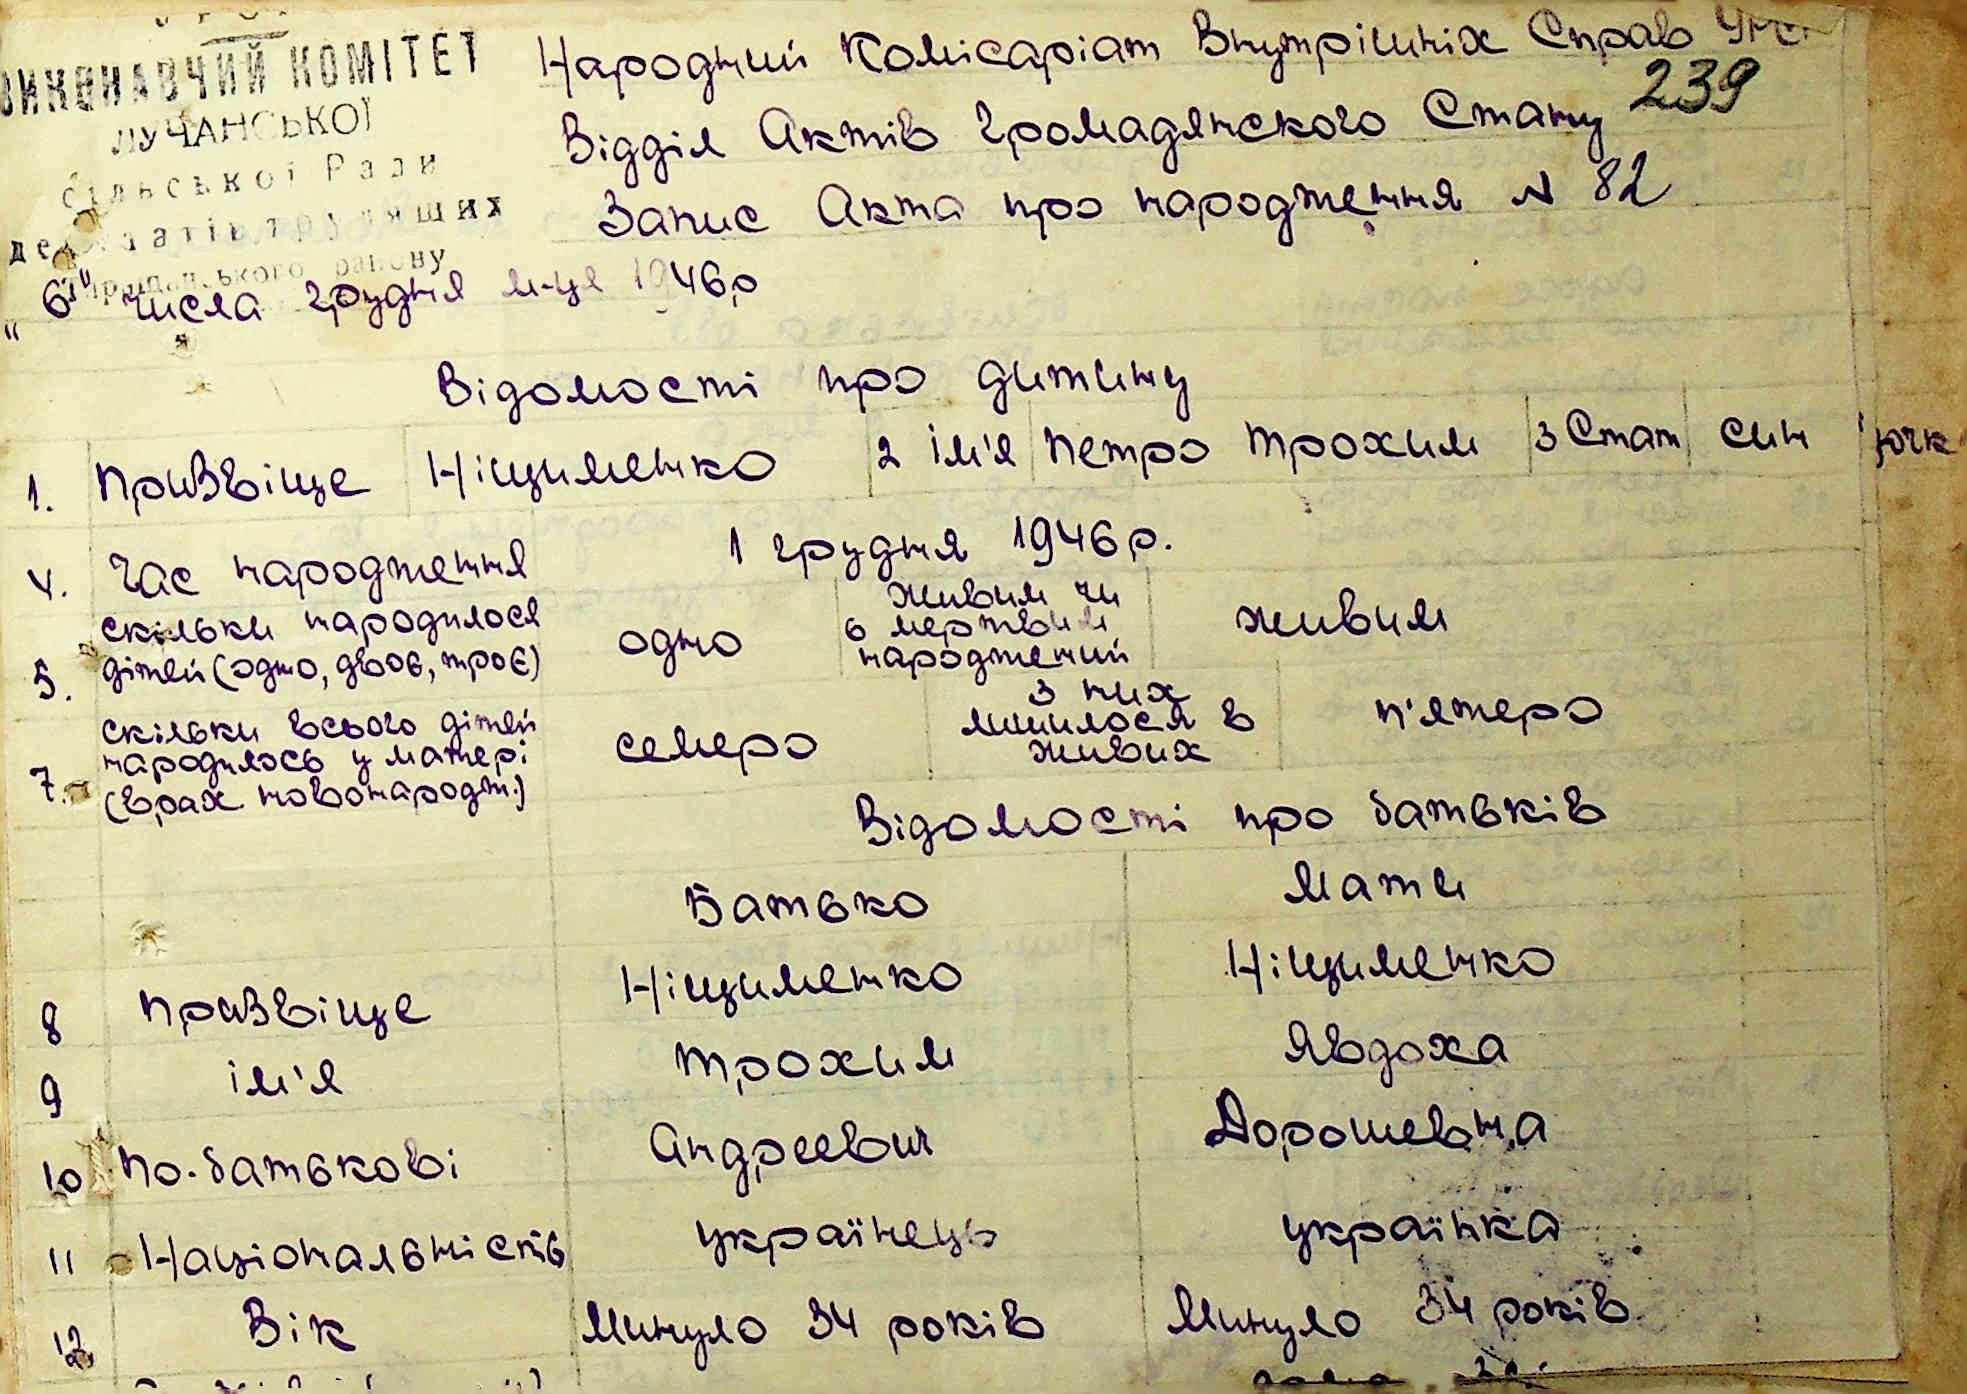 ВИКОНАВЧИЙ КОМІТЕТ
ЛУЧАНСЬКОЇ
сільської Ради
депутатів трудящих
району
Народний Комісаріат Внутрішніх Справ УРСР
239
Відділ Актів Громадянского Стану
Запис Акта про народження N 82
"6" числа грудня м-ця 1946р
Відомості про дитину
1. Призвіще Ніщименко 2 ім'я Петро Трохим 3 Стат син
4. Час народження 1 грудня 1946 р.
5. скільки народилося дітей (одно, двоє, троє) одно 6 живим чи мертвим народжений живим
7. скільки всього дітей народилось у матері (врах новонародж.) семеро з них лишилося в живих п'ятеро
Відомості про батьків
Батько Мати
8 Призвіще Ніщименко Ніщименко
9 ім'я Трохим Явдоха
10 По-батькові Андреевич Дорошевна
11 Національність українець українка
12 Вік Минуло 34 років Минуло 34 років